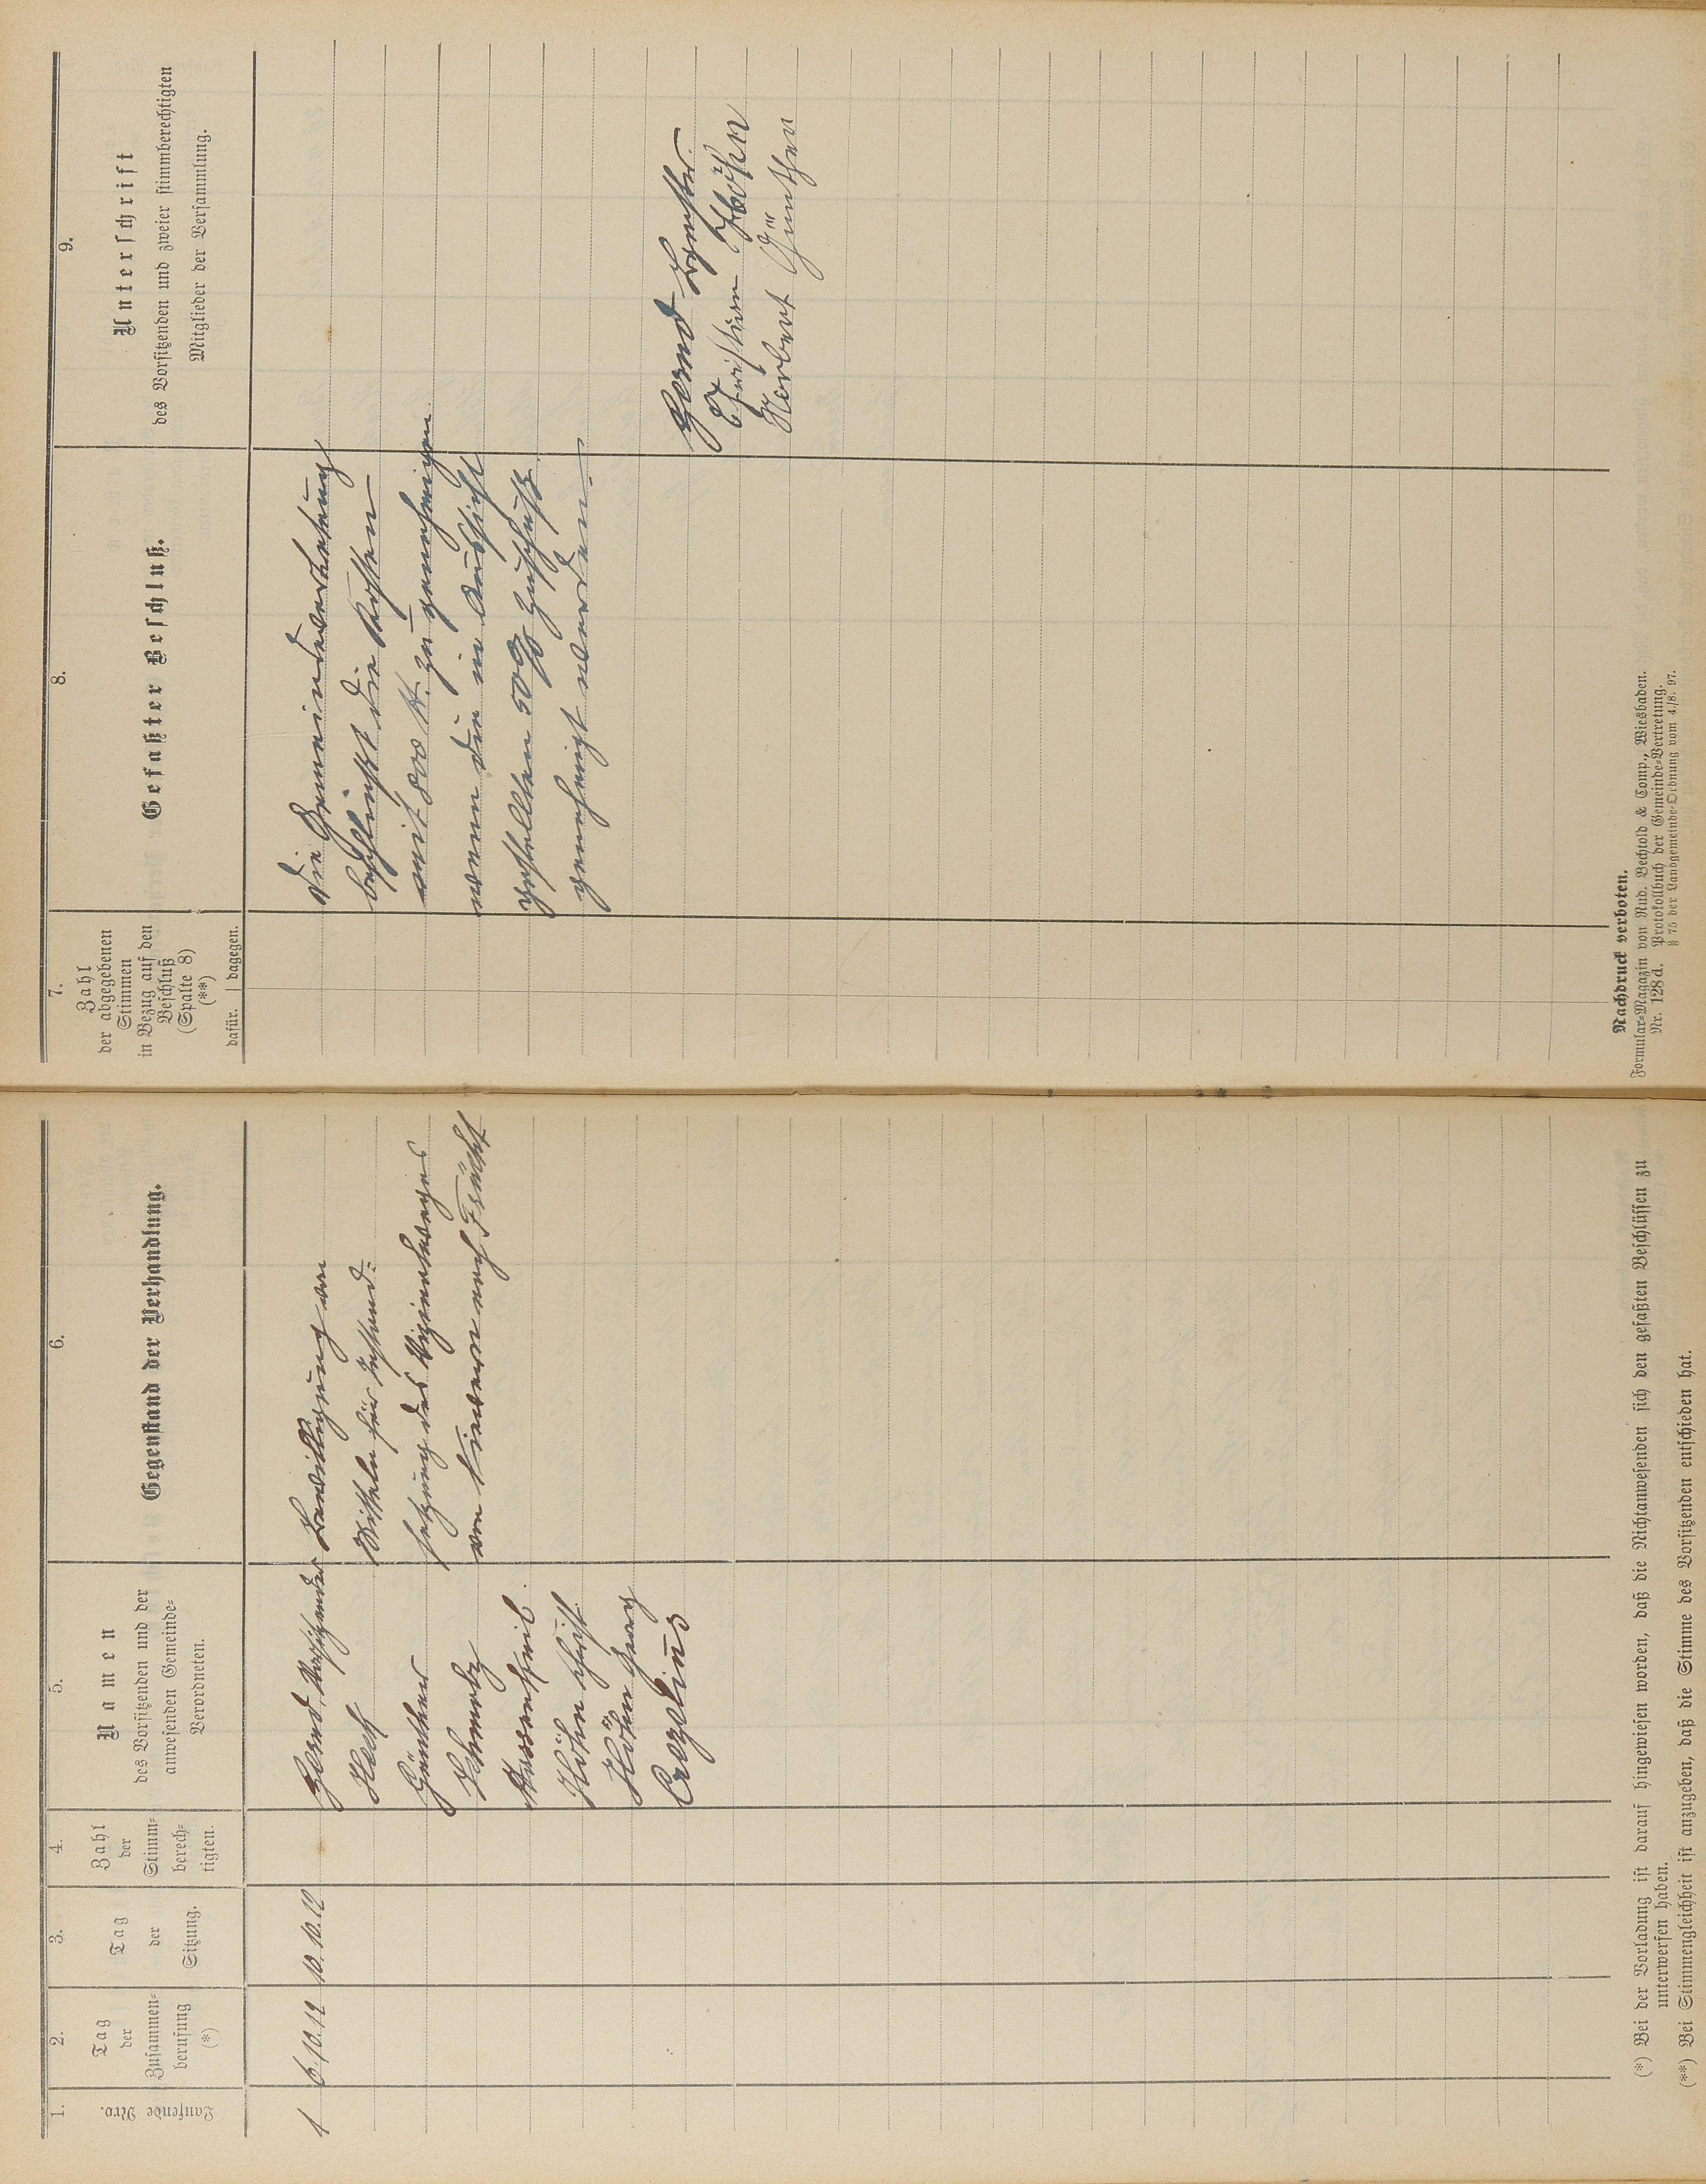 1.
Laufende Nro.
2.
Tag
der
Zusammen-
berufung
(*)
3.
Tag
der
Sitzung.
4.
Zahl
der
Stimm-
berech-
tigten.
5.
Namen
des Vorsitzenden und der
anwesenden Gemeinde-
Verordneten.
6.
Gegenstand der Verhandlung.
1
6.10.12
10.10.12
Vorsitzender
Günther
Höhn Christ.
Höhn Georg
Bewilligung von
Mitteln für Instand-
setzung des Vizinalweges
von Nievern nach Frücht
(*) Bei der Vorladung ist darauf hingewiesen worden, daß die Nichtanwesenden sich den gefaßten Beschlüssen zu
unterwerfen haben.
(**) Bei Stimmengleichheit ist anzugeben, daß die Stimme des Vorsitzenden entschieden hat.
7.
Zahl
der abgegebenen
Stimmen
in Bezug auf den
Beschluß
(Spalte 8)
(**)
dafür. dagegen.
8.
Gefaßter Beschluß.
9.
Unterschrift
des Vorsitzenden und zweier stimmberechtigten
Mitglieder der Versammlung.
Die Gemeindevertretung
beschließt die Kosten
mit 800 M. zu genehmigen
wenn die in Aussicht
gestellten 50% Zuschuß
genehmigt werden
Christian Höhn
Herbert Günther
Nachdruck verboten.
Formular-Magazin von Rud. Bechtold & Comp., Wiesbaden.
Nr. 128d. Protokollbuch der Gemeinde-Vertretung.
§ 75 der Landgemeinde-Ordnung vom 4./8. 97.